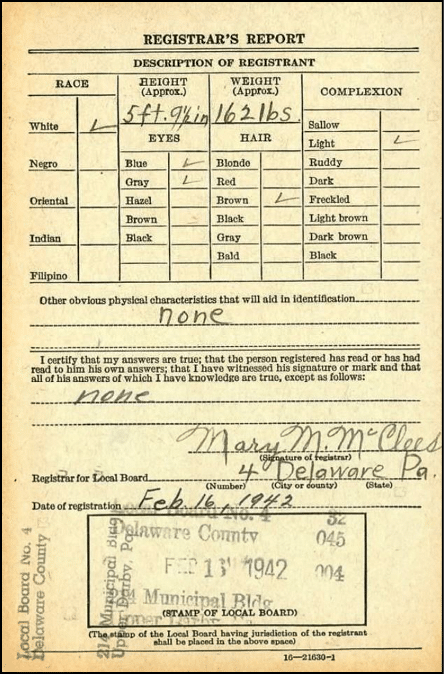 REGISTRAR'S REPORT
DESCRIPTION OF REGISTRANT
RACE
HEIGHT (Approx.)
WEIGHT (Approx.)
COMPLEXION
5ft. 9½in
162 lbs.
White ✓
EYES
HAIR
Sallow
Light ✓
Negro
Blue ✓
Blonde
Ruddy
Gray ✓
Red
Dark
Oriental
Hazel
Brown ✓
Freckled
Brown
Black
Light brown
Indian
Black
Gray
Dark brown
Bald
Black
Filipino
Other obvious physical characteristics that will aid in identification
none
I certify that my answers are true; that the person registered has read or has had
read to him his own answers; that I have witnessed his signature or mark and that
all of his answers of which I have knowledge are true, except as follows:
none
Mary M. McClees
(Signature of registrar)
Registrar for Local Board 4 Delaware Pa.
(Number) (City or county) (State)
Date of registration Feb. 16, 1942
Local Board No. 4 32
Delaware County 045
FEB 16 1942 004
214 Municipal Bldg
Upper Derby, Pa.
(STAMP OF LOCAL BOARD)
(The stamp of the Local Board having jurisdiction of the registrant
shall be placed in the above space)
16—21630-1
Local Board No. 4
Delaware County
214 Municipal Bldg
Upper Derby, Pa.